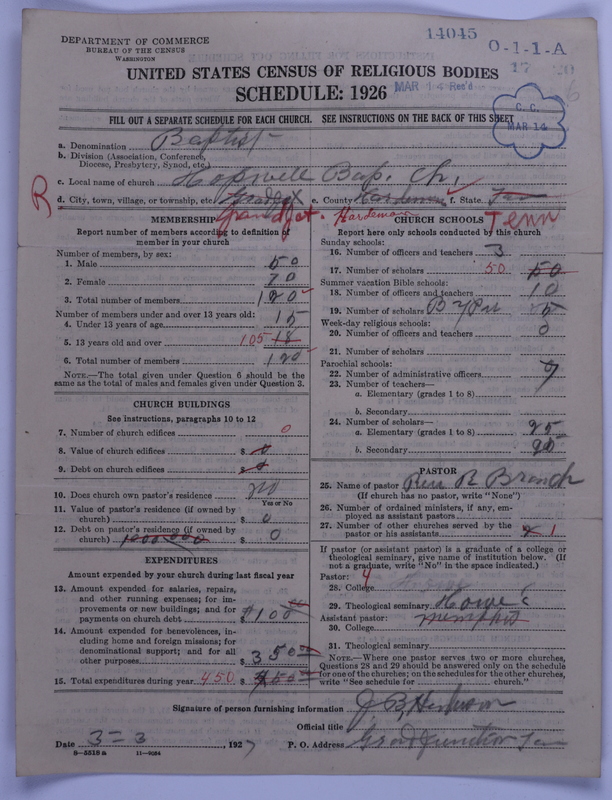 DEPARTMENT OF COMMERCE
BUREAU OF THE CENSUS
WASHINGTON
14045
O-1-1-A
17
UNITED STATES CENSUS OF RELIGIOUS BODIES
SCHEDULE: 1926
MAR 14 Rec'd
C. C.
MAR 14
FILL OUT A SEPARATE SCHEDULE FOR EACH CHURCH. SEE INSTRUCTIONS ON THE BACK OF THIS SHEET
a. Denomination Baptist
b. Division (Association, Conference, Diocese, Presbytery, Synod, etc.)
c. Local name of church Hopewell Bap. Ch.
d. City, town, village, or township, etc. Grand Jct. e. County Hardeman f. State Tenn
R
Hardeman
MEMBERSHIP
Report number of members according to definition of member in your church
Number of members, by sex:
1. Male 50
2. Female 70
3. Total number of members 120
Number of members under and over 13 years old:
4. Under 13 years of age 15
5. 13 years old and over 105 18
6. Total number of members 120
NOTE.—The total given under Question 6 should be the same as the total of males and females given under Question 3.
CHURCH BUILDINGS
See instructions, paragraphs 10 to 12
7. Number of church edifices 0
8. Value of church edifices $ 0
9. Debt on church edifices $ 0
10. Does church own pastor's residence no
Yes or No
11. Value of pastor's residence (if owned by church) $ 0
12. Debt on pastor's residence (if owned by church) $ 0
EXPENDITURES
Amount expended by your church during last fiscal year
13. Amount expended for salaries, repairs, and other running expenses; for improvements or new buildings; and for payments on church debt $ 100
14. Amount expended for benevolences, including home and foreign missions; for denominational support; and for all other purposes $ 350
15. Total expenditures during year 450 $
CHURCH SCHOOLS
Report here only schools conducted by this church
Sunday schools:
16. Number of officers and teachers 3
17. Number of scholars 50 50
Summer vacation Bible schools:
18. Number of officers and teachers 10
19. Number of scholars
Week-day religious schools:
20. Number of officers and teachers 0
21. Number of scholars
Parochial schools:
22. Number of administrative officers
23. Number of teachers—
a. Elementary (grades 1 to 8)
b. Secondary
24. Number of scholars—
a. Elementary (grades 1 to 8) 25
b. Secondary
PASTOR
25. Name of pastor Rev R Branch
(If church has no pastor, write "None")
26. Number of ordained ministers, if any, employed as assistant pastors
27. Number of other churches served by the pastor or his assistants 1
If pastor (or assistant pastor) is a graduate of a college or theological seminary, give name of institution below. (If not a graduate, write "No" in the space indicated.)
Pastor: 4
28. College
29. Theological seminary Howe
Assistant pastor: Memphis
30. College
31. Theological seminary
NOTE.—Where one pastor serves two or more churches, Questions 28 and 29 should be answered only on the schedule for one of the churches; on the schedules for the other churches, write "See schedule for church."
Signature of person furnishing information J. B.
Official title
Date 3-3, 1927 P. O. Address Grand Junction Ten
8—5518 a 11—9064